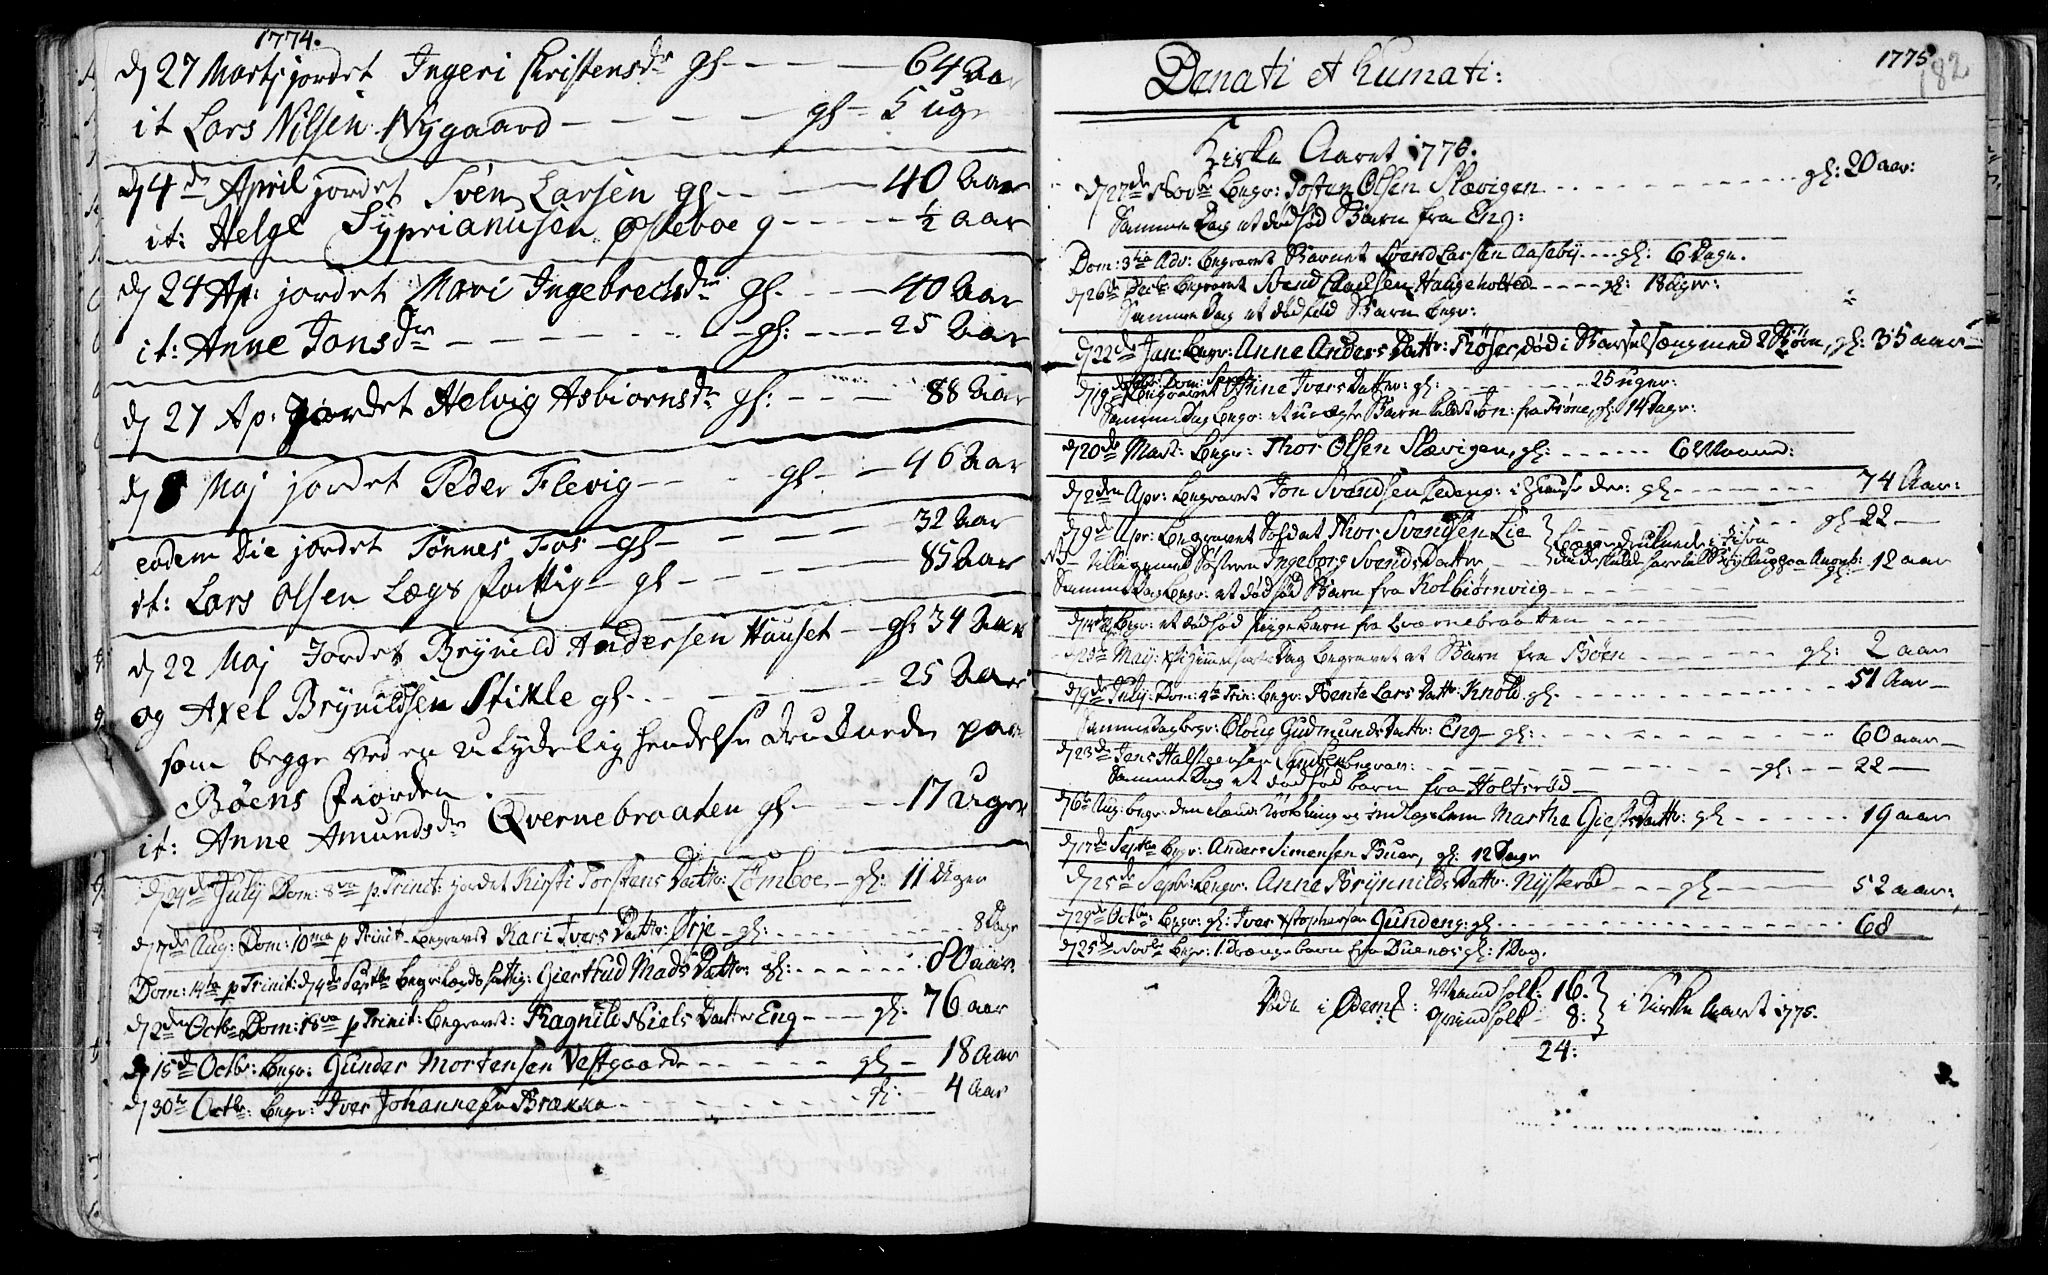 1774.
d 27 Marts jordet Ingeri Christensdr gl - - - 64 Aar
it Lars Nilsen Nygaard - - - - gl - 5 uge
d 4de April jordet Sven Larsen gl - - - 40 Aar
it: Helge Syprianusen Østeboe g - - - - ½ aar
d 24 Ap: jordet Mari Ingebrechsdr gl. - - - 40 Aar
it: Anne Jonsdr - - - - - gl: - - - 25 Aar
d 27 Ap: Jordet Helvig Asbiornsdr gl: - - - 88 Aar
d 8 Maj jordet Peder Flevig - - - gl - - 46 Aar
eodem Die jordet Tønnes Fos - gl - - - - 32 Aar
it: Lars Olsen Lægs fattig - gl - - - - 85 Aar
d 22 Maj Jordet Brynild Andersen Hauset - gl: 34 Aar
og Axel Brynildsen Stikle gl - - - - 25 Aar
som begge ved en ulykkelig hendelse druknede paa
Bøens Fiorden
it: Anne Amundsdr Qvernebraaten gl - - - 17 Uger
d 24de July Dom: 8va p. Trinit: jordet Kirsti Torstens Datter: Lømboe - gl: 11 Uger
d 7de Aug: Dom: 10ma p Trinit. begravet Kari Ivers Datter: Ørje - gl: - - - 8 Dage
Dom: 14ta p Trinit: d 4de Septbr begr: Lægds fattig: Giertrud Mads Datter: gl: - - - 80 aar.
d 2den Octbr Dom: 18va p Trinit: begravet: Ragnild Niels Datter Eng - - - gl: 76 aar
d 15de Octbr: begr: Gunder Mortensen Vestgaard - - - - gl - 18 Aar
d 30te Octbr: begr: Iver Johannesen Brække - - - - gl: - 4 Aar
1775
182
Denati et humati:
Kirke Aaret 1775.
d 27de Novbr begr: Jostan Olsen Skævigen - - - - gl: 20 aar:
Samme Dag et dødfød Barn fra Eng:
Dom: 3tia Adv: begravet Barnet Svend Larsen Aaseby - - - gl: 6 Dage.
d 26de Decbr begravet Svend Clausen Haugeholted - - - - gl: 18 Uger:
Samme Dag et dødfød Barn begr:
d 22de Jan: begr: Anne Anders Datter: Røser død i Barselsæng med 2 Børn, gl: 35 aar -
d 19de Febr: Dom: begravet Stine Ivers Datter: gl: - - - - 25 uger:
Samme Dag begr: et uægte Barn kaldt Jon: fra Trøne, gl: 14 Dage:
d 20de Mart: begr: Thor Olsen Skævigen, gl: - - - - 6 Maaned:
d 2den Apr: begravet Jon Svendsen Ledeng: i Huuse der: gl - - - - 74 Aar:
d 9de Apr: begravet Soldat Thor Svendsen Lie - - - - gl - 22 -
NB - tillige med Søsteren Ingeborg Svends Datter, - } begge druknede i Isen gl: 12 aar
Samme Dag begr: et dødfød Barn fra Kolbiørnviig - - - -
d 14de begr: et dødfød Pigebarn fra Qvernebraatten - - -
d 25de May: Xsti Himmelfarts Dag begravet et Barn fra Bøen - - - gl: 2 aar
d 9de July: Dom: 4ta Trin: begr: Bente Lars Datter: Knold gl: - - - - 51 Aar -
Samme Dag begr: Oloug Gudmunds Datter: Eng - gl: - - - - 60 aar -
d 23de Jens Halstensen Sandbek begrav: - - - - gl: - - 22 -
Samme Dag et dødfød barn fra Holtsrød -
d 6te Aug: begr: Martha Giests Datter: gl - - - - 19 aar
d 17de Septbr begr: Anders Simensen Buer, gl: 12 Dage
d 25de Septbr: begr: Anne Brynnilds Datter: Nysterød - - - gl - - - 52 aar:
d 29de Octbr: begr: gl: Iver Xstophersen Gundeng: gl. - - - - 68
d 25de Novbr begr: 1 Drænge barn fra Duenæs gl: 1 Dag.
Døde i Idem: Mandfolk: 16. } i Kirke Aaret 1775.
Qvindfolk 8: }
24: